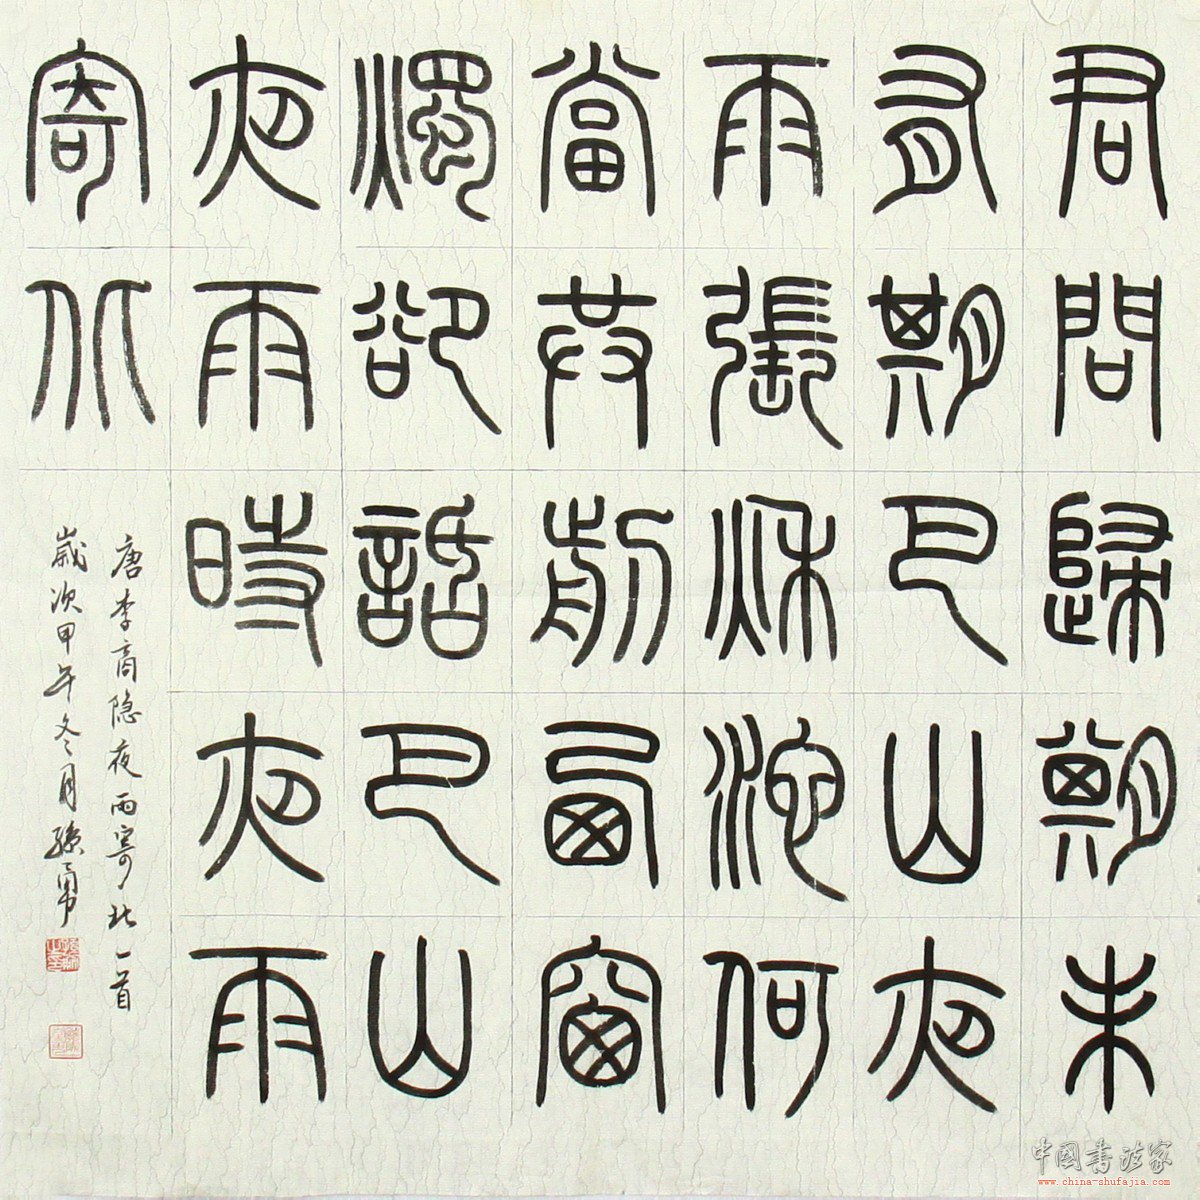 君問歸期未
有期巴山夜
雨張秋池何
當共剪西窗
燭卻話巴山
夜雨時夜雨
寄北
唐李商隐夜雨寄北一首
歲次甲午冬月孫勇
中國書法家
www.china-shufajia.com